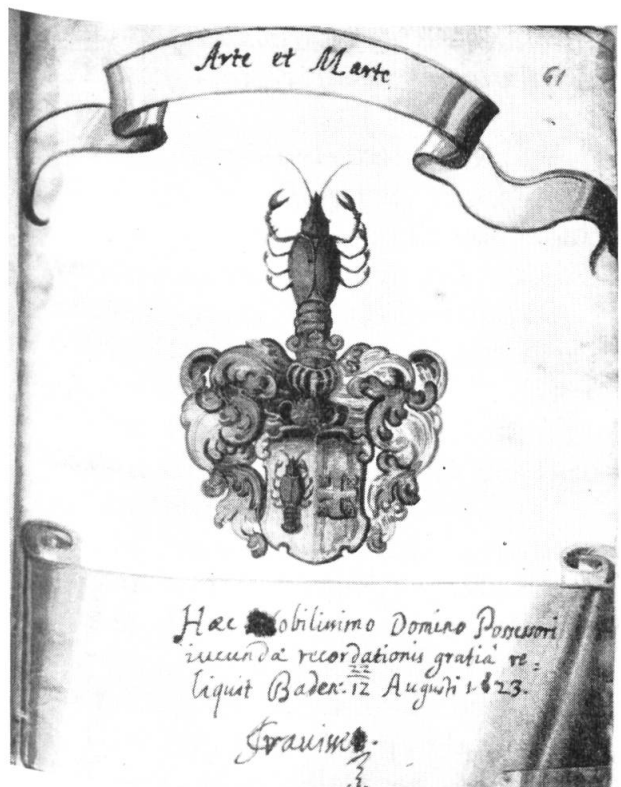 Arte et Marte
61
Hæc Nobilissimo Domino Possessori
iucundæ recordationis gratiâ re=
liquit Baden. 22/12 Augusti 1623.